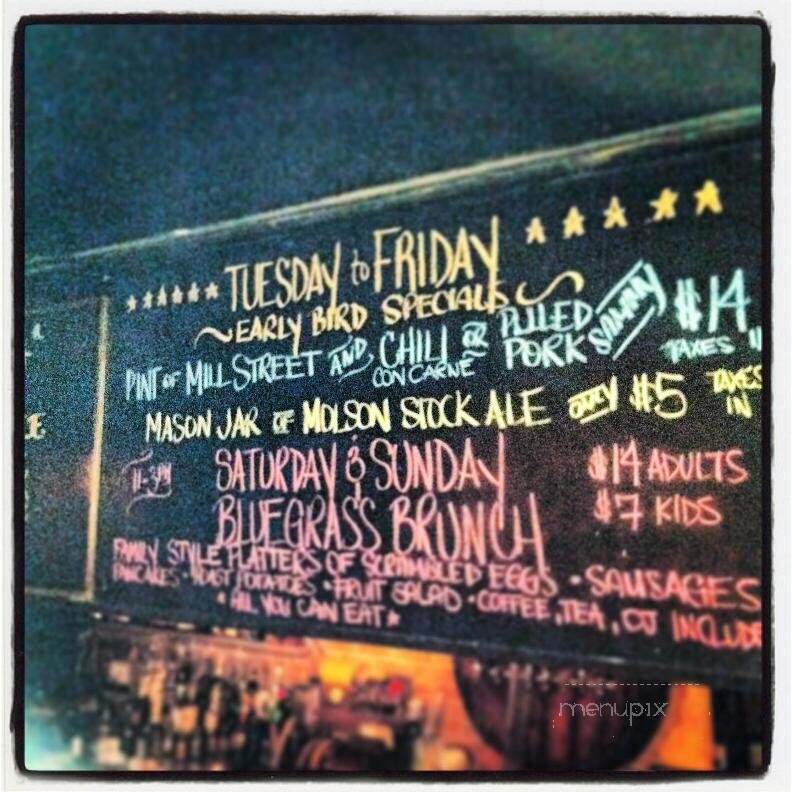 TUESDAY to FRIDAY
~EARLY BIRD SPECIALS~
PINT OF MILL STREET AND CHILI CON CARNE OR PULLED PORK $14 TAXES
MASON JAR OF MOLSON STOCK ALE ONLY $5 TAXES IN
11-3PM SATURDAY & SUNDAY $14 ADULTS
BLUEGRASS BRUNCH $7 KIDS
FAMILY STYLE PLATTERS OF SCRAMBLED EGGS • SAUSAGES
PANCAKES • ROAST POTATOES • FRUIT SALAD • COFFEE, TEA, OJ INCLUDE
• ALL YOU CAN EAT •
menupix